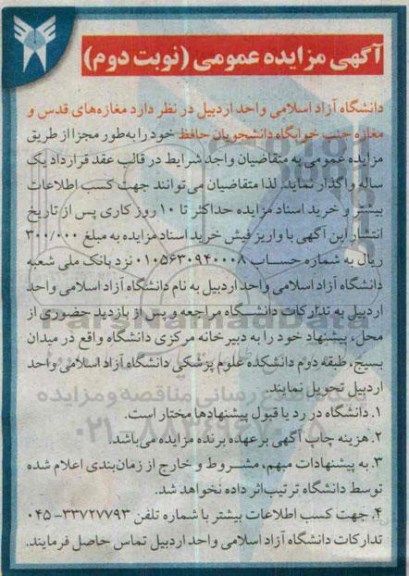 آگهی مزایده عمومی (نوبت دوم)
دانشگاه آزاد اسلامی واحد اردبیل در نظر دارد مغازه‌های قدس و
مغازه جنب خوابگاه دانشجویان حافظ خود را به‌طور مجزا از طریق
مزایده عمومی به متقاضیان واجد شرایط در قالب عقد قرارداد یک
ساله واگذار نماید. لذا متقاضیان می‌توانند جهت کسب اطلاعات
بیشتر و خرید اسناد مزایده حداکثر تا ۱۰ روز کاری پس از تاریخ
انتشار این آگهی با واریز فیش خرید اسناد مزایده به مبلغ ۳۰۰/۰۰۰
ریال به شماره حساب ۰۱۰۵۶۳۰۹۴۰۰۰۸ نزد بانک ملی شعبه
دانشگاه آزاد اسلامی واحد اردبیل به نام دانشگاه آزاد اسلامی واحد
اردبیل به تدارکات دانشگاه مراجعه و پس از بازدید حضوری از
محل، پیشنهاد خود را به دبیرخانه مرکزی دانشگاه واقع در میدان
بسیج، طبقه دوم دانشکده علوم پزشکی دانشگاه آزاد اسلامی واحد
اردبیل تحویل نمایند.
۱. دانشگاه در رد یا قبول پیشنهادها مختار است.
۲. هزینه چاپ آگهی بر عهده برنده مزایده می‌باشد.
۳. به پیشنهادات مبهم، مشروط و خارج از زمان‌بندی اعلام شده
توسط دانشگاه ترتیب‌اثر داده نخواهد شد.
۴. جهت کسب اطلاعات بیشتر با شماره تلفن ۳۳۷۲۷۷۹۳-۰۴۵
تدارکات دانشگاه آزاد اسلامی واحد اردبیل تماس حاصل فرمایند.
ParsNamadData